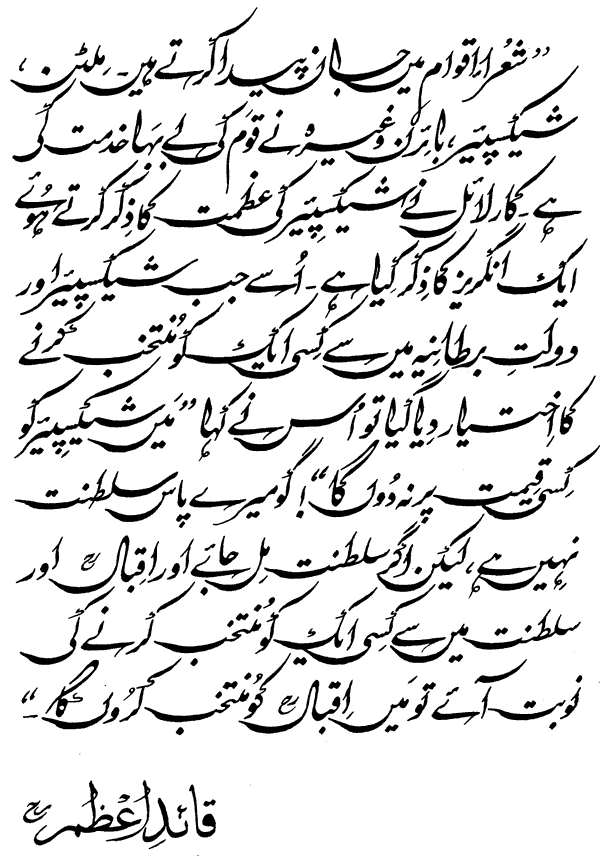 ”شعراء اقوام میں جان پیدا کرتے ہیں۔ مِلٹن،
شیکسپیئر، بائرن وغیرہ نے قوم کی بے بہا خدمت کی
ہے۔ کارلائل نے شیکسپِیئر کی عظمت کا ذکر کرتے ہُوئے
ایک انگریز کا ذِکر کیا ہے۔ اُسے جب شیکسپیئر اور
دولتِ برطانیہ میں سے کسی ایک کو مُنتخب کرنے
کا اِختیار دیا گیا تو اُس نے کہا ”مَیں شیکسپِیئر کو
کِسی قیمت پر نہ دُوں گا“! گو میرے پاس سلطنت
نہیں ہے، لیکن اگر سلطنت مِل جائے اور اقبالؒ اور
سلطنت میں سے کسِی ایک کو مُنتخب کرنے کی
نوبت آئے تو مَیں اِقبالؒ کو مُنتخب کرُوں گا۔“
قائدِاعظمؒ